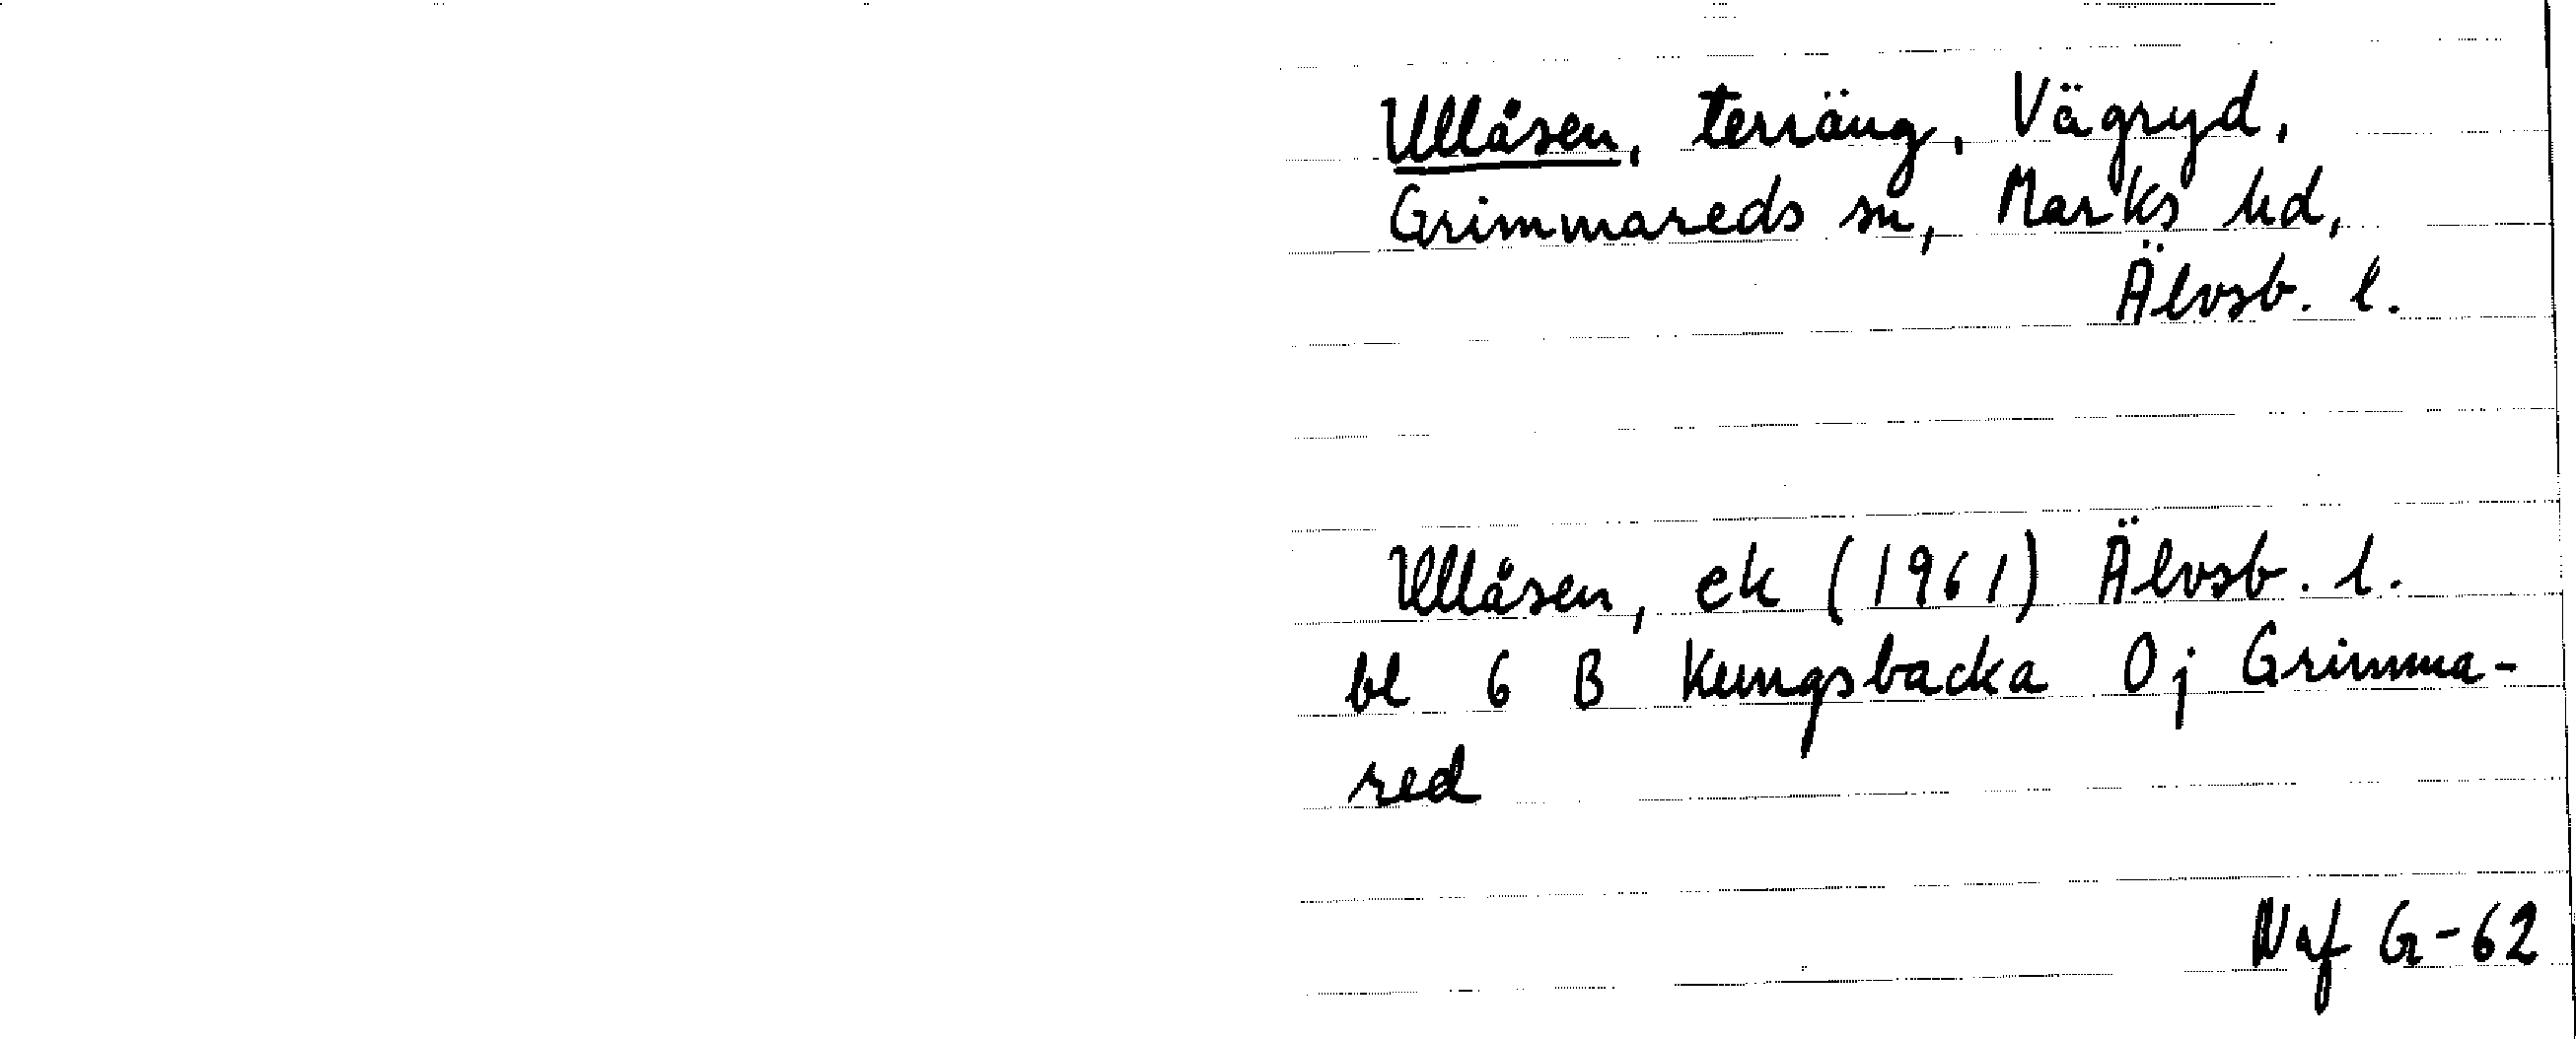 Ullåsen, terräng, Vägryd,
Grimmareds sn, Marks hd,
Älvsb. l.
Ullåsen, ek (1961) Älvsb. l.
bl 6 B Kungsbacka 0j Grimma-
red
Naf G-62